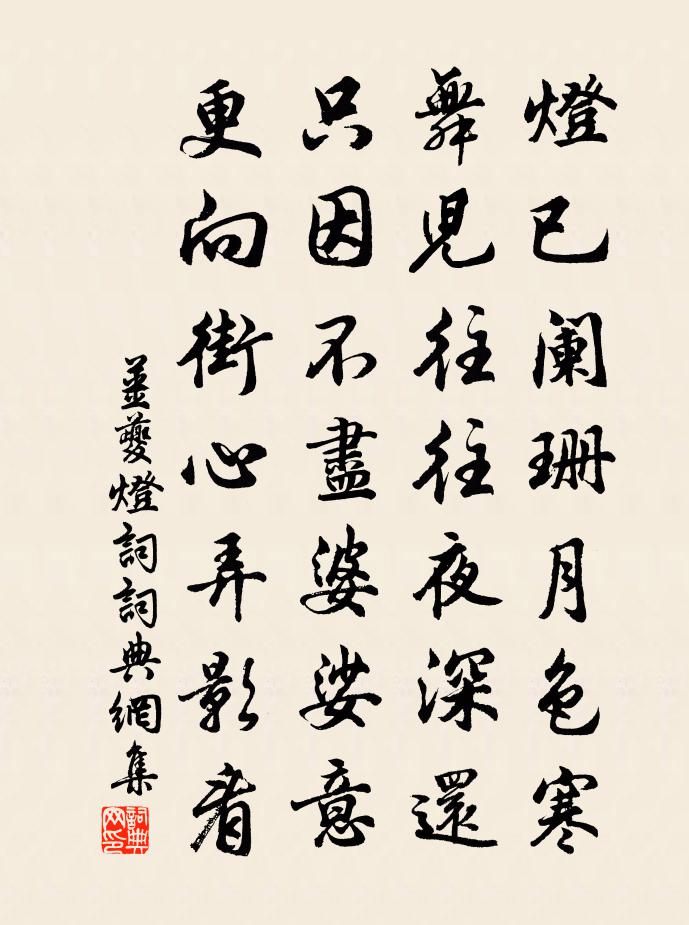 燈已阑珊月色寒
舞児往往夜深還
只因不盡婆娑意
更向街心弄影看
姜夔燈詞詞典網集
詞典
网印